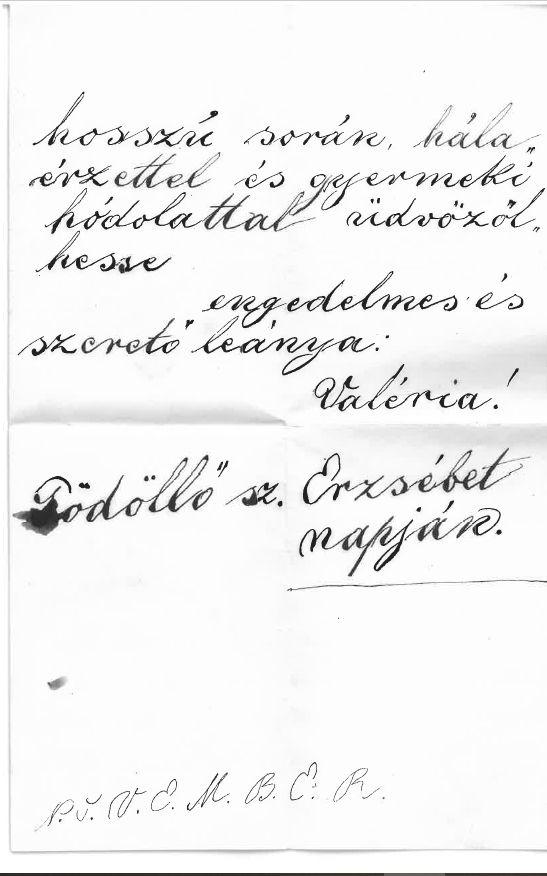 hosszú során, hála„
érzettel és gyermeki
hódolattal üdvözöl„
hesse
engedelmes és
szerető leánya:
Valéria!
Gödöllő sz. Erzsébet
napján.
N. I. V. E. M. B. E. R.